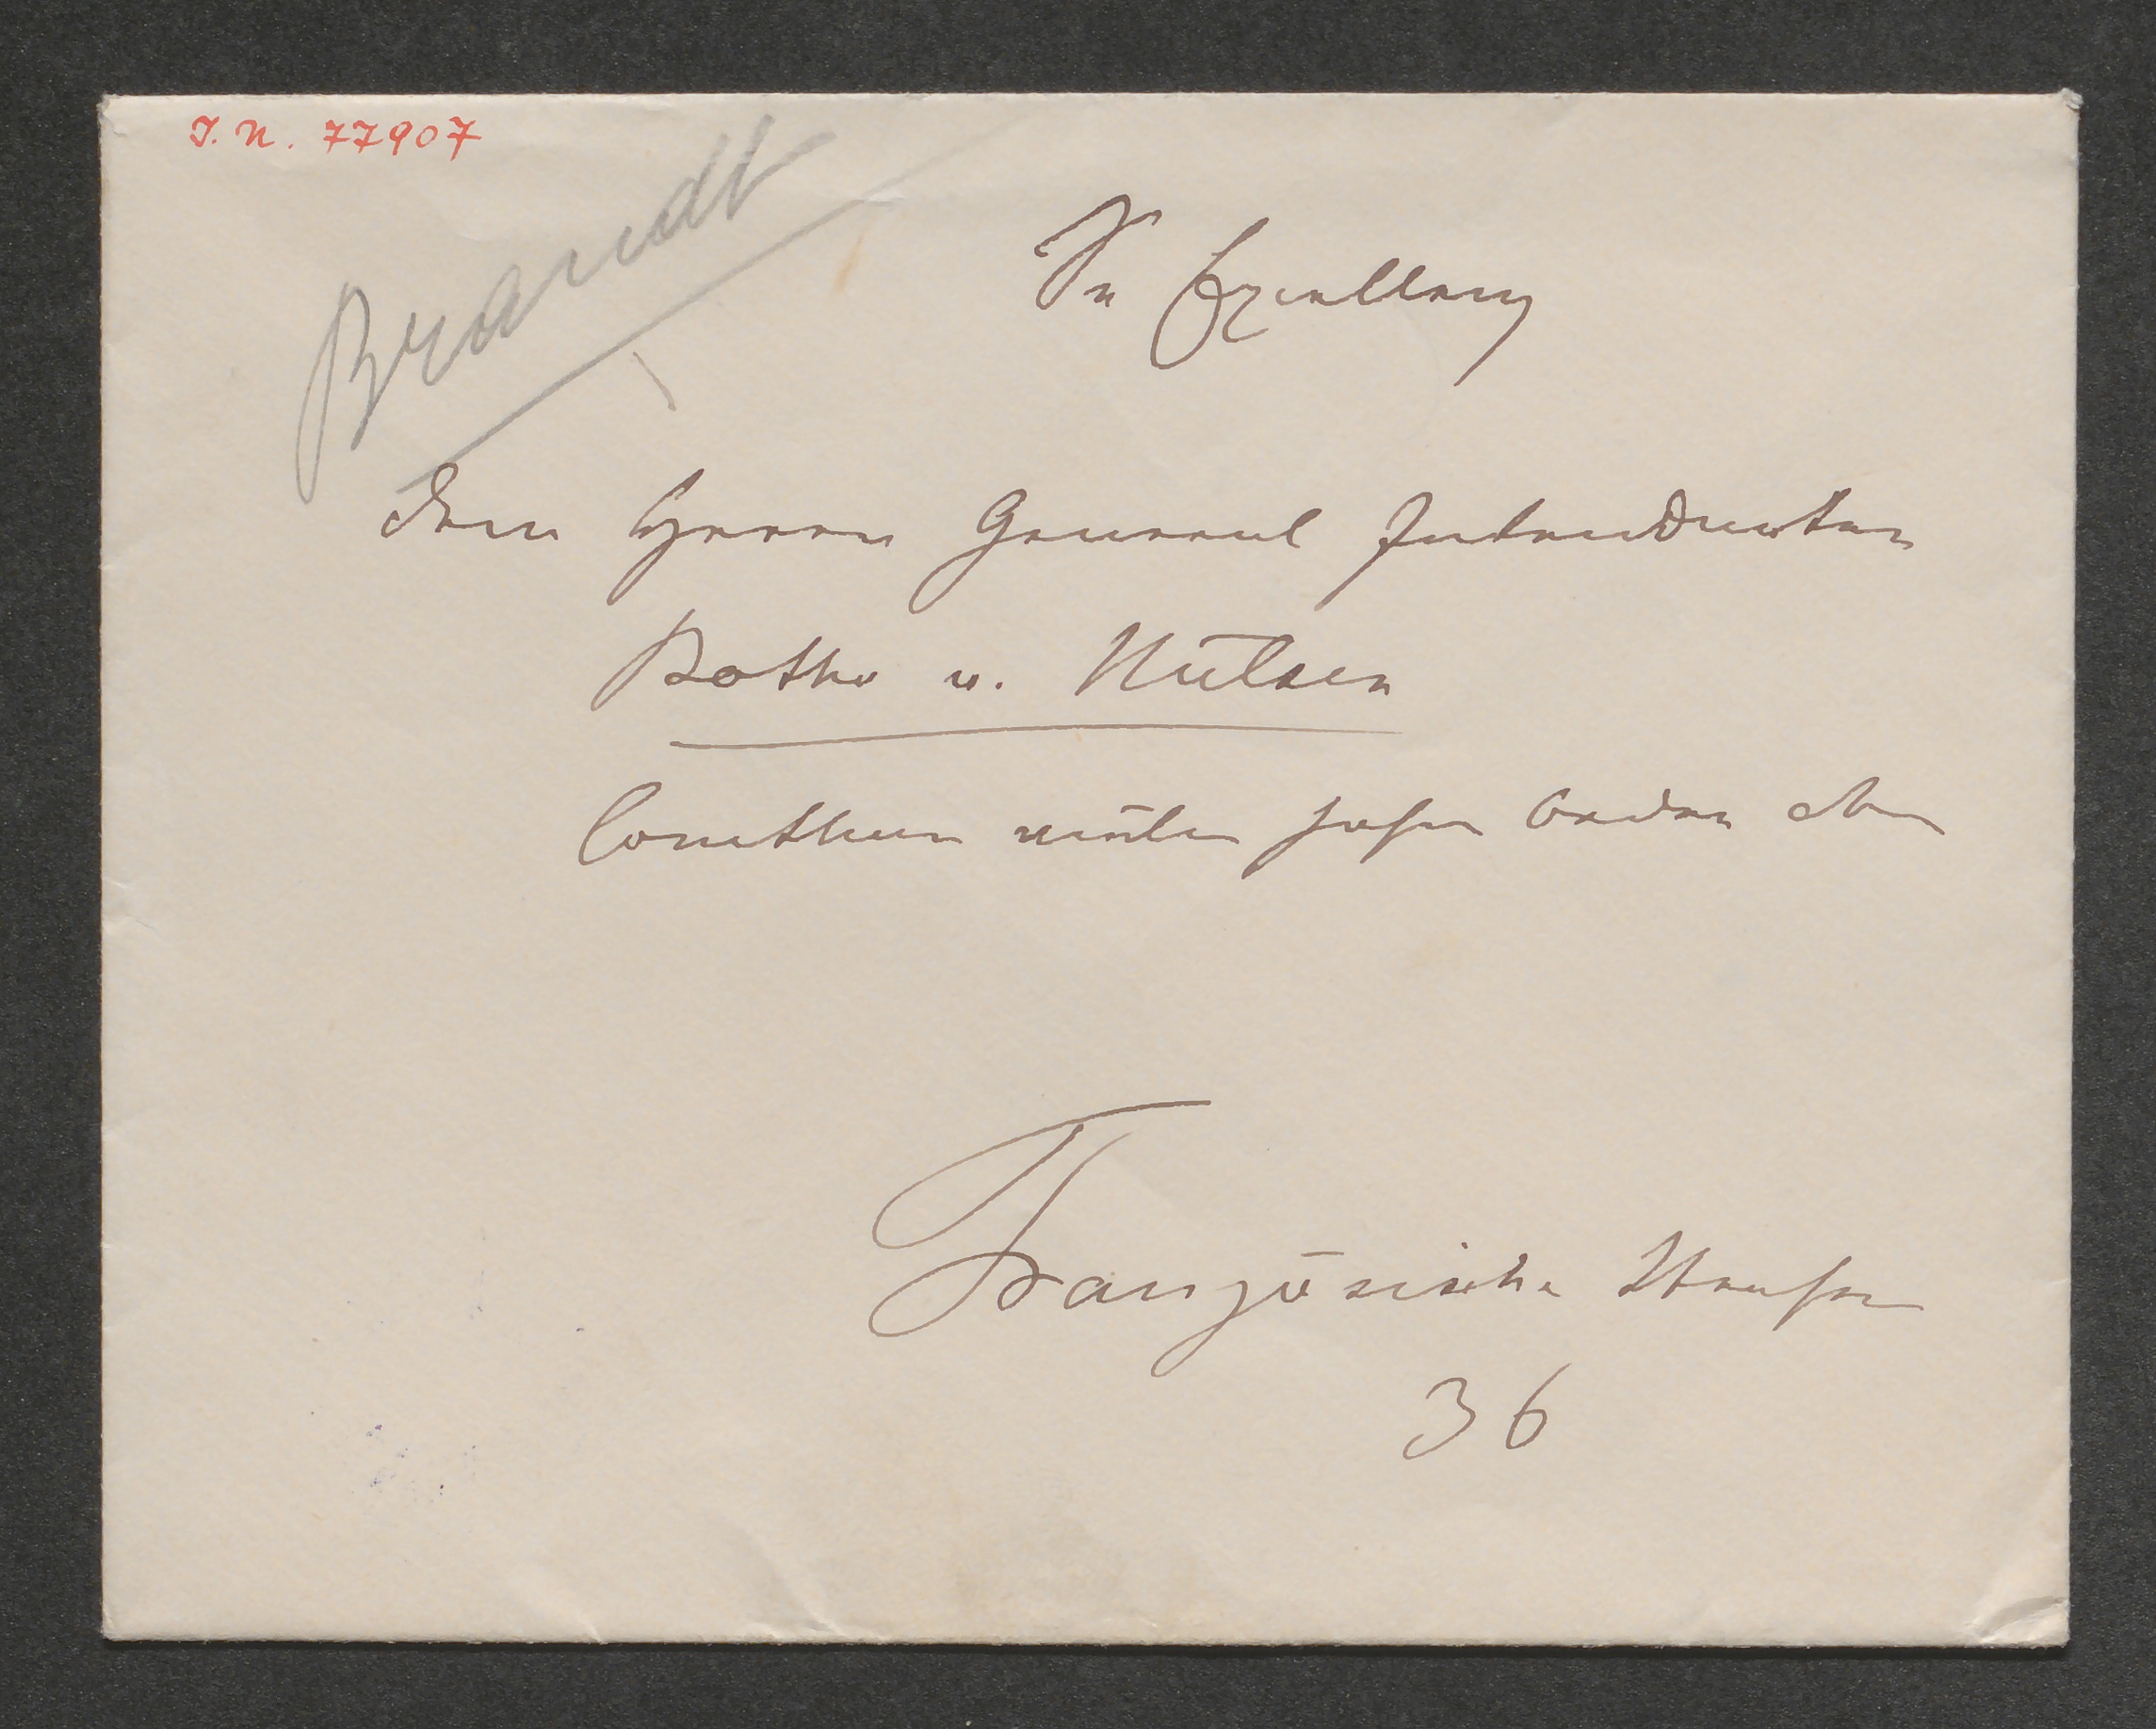 I. N. 77907
Brandt
Sr Exzellenz
dem Herrn General Intendanten
Botho v. Hülsen
Comthur vieler hoher Orden etc
Französische Strasse
36